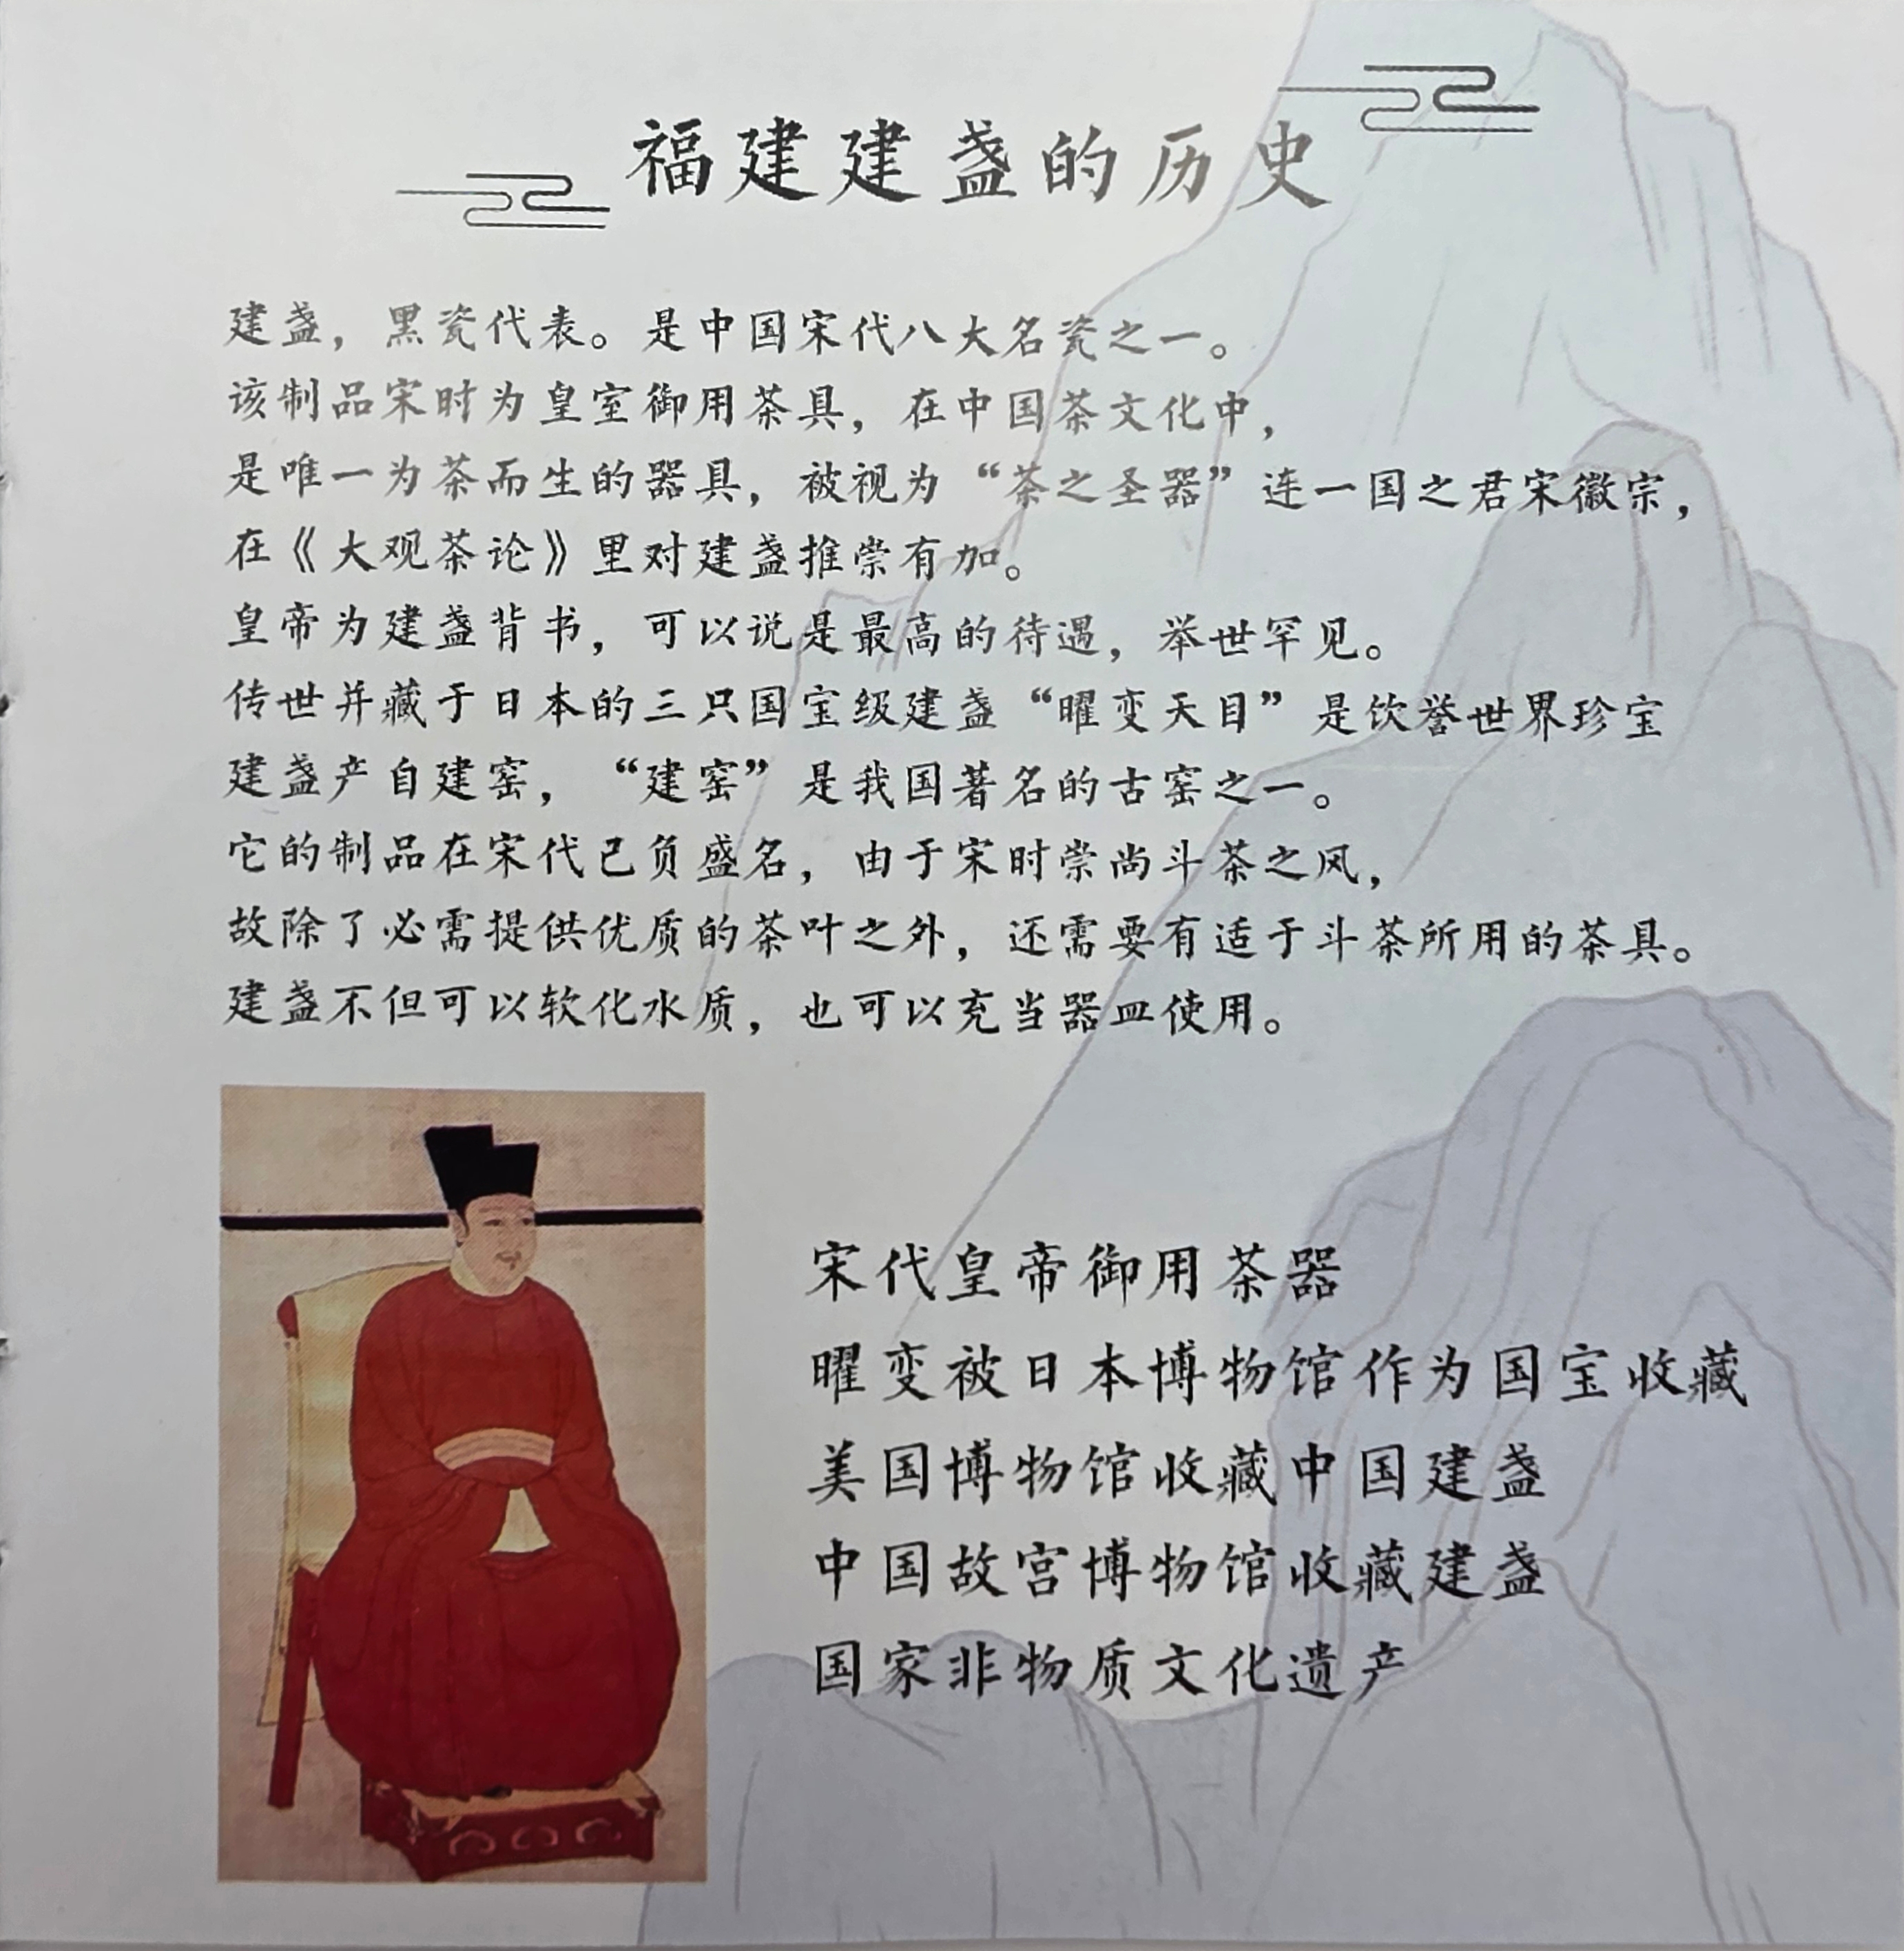 福建建盏的历史
建盏，黑瓷代表。是中国宋代八大名瓷之一。
该制品宋时为皇室御用茶具，在中国茶文化中，
是唯一为茶而生的器具，被视为“茶之圣器”连一国之君宋徽宗，
在《大观茶论》里对建盏推崇有加。
皇帝为建盏背书，可以说是最高的待遇，举世罕见。
传世并藏于日本的三只国宝级建盏“曜变天目”是饮誉世界珍宝
建盏产自建窑，“建窑”是我国著名的古窑之一。
它的制品在宋代已负盛名，由于宋时崇尚斗茶之风，
故除了必需提供优质的茶叶之外，还需要有适于斗茶所用的茶具。
建盏不但可以软化水质，也可以充当器皿使用。
宋代皇帝御用茶器
曜变被日本博物馆作为国宝收藏
美国博物馆收藏中国建盏
中国故宫博物馆收藏建盏
国家非物质文化遗产